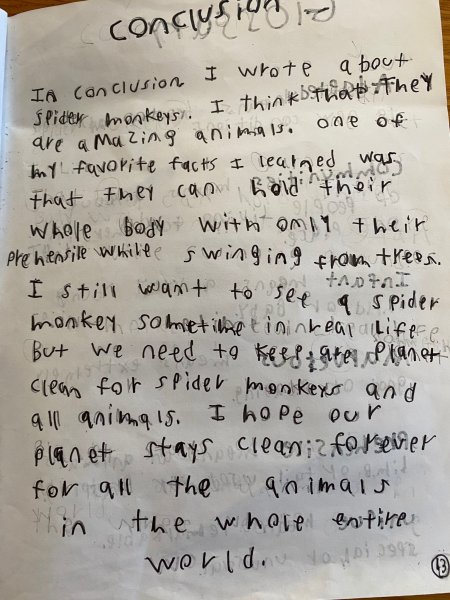 conclusion
In conclusion I wrote about
spider monkeys. I think that they
are amazing animals. one of
my favorite facts I learned was
that they can hold their
whole body with only their
prehensile while swinging from trees.
I still want to see a spider
monkey sometime in real life
But we need to keep are planet
clean for spider monkeys and
all animals. I hope our
planet stays clean forever
for all the animals
in the whole entire
world.
13